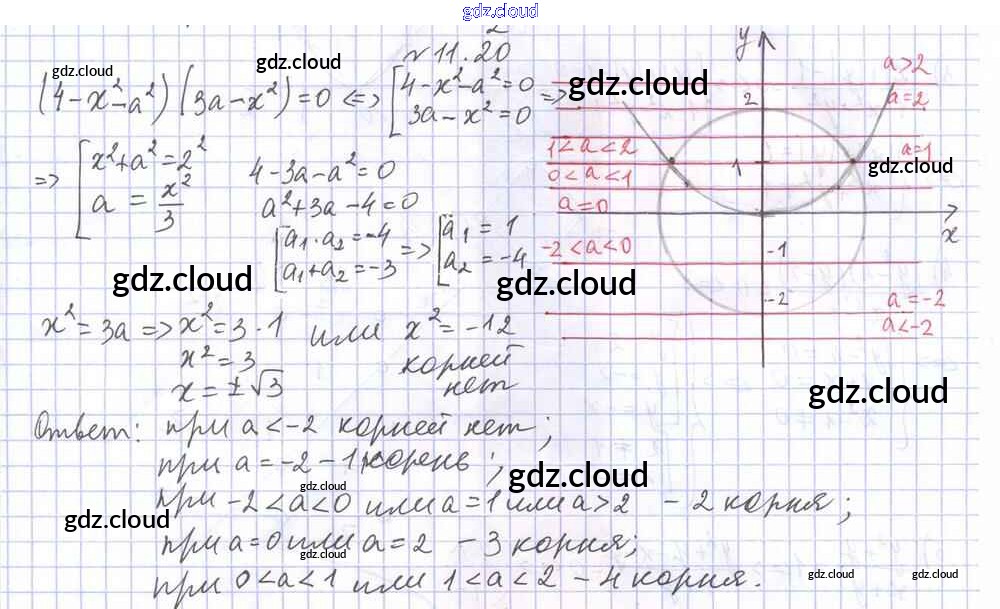 gdz.cloud
2
N 11.20
gdz.cloud
gdz.cloud
gdz.cloud
(4-x²-a²)(3a-x²)=0 <=> [4-x²-a²=0
3a-x²=0 =>
=> [x²+a²=2²
a = x²/3
4-3a-a²=0
a²+3a-4=0
[a₁·a₂=-4
a₁+a₂=-3 => [a₁ = 1
a₂ = -4
gdz.cloud
gdz.cloud
x²=3a => x²=3·1 или x²=-12
x²=3 корней
x=±√3 нет
y
a>2
2
a=2
1<a<2
a=1
1
gdz.cloud
0<a<1
a=0
x
-2<a<0
-1
-2
a=-2
a<-2
gdz.cloud
Ответ: при a<-2 корней нет;
при a=-2 - 1 корень;
gdz.cloud
gdz.cloud
при -2<a<0 или a=1 или a>2 - 2 корня;
gdz.cloud
при a=0 или a=2 - 3 корня;
gdz.cloud
при 0<a<1 или 1<a<2 - 4 корня.
gdz.cloud
gdz.cloud